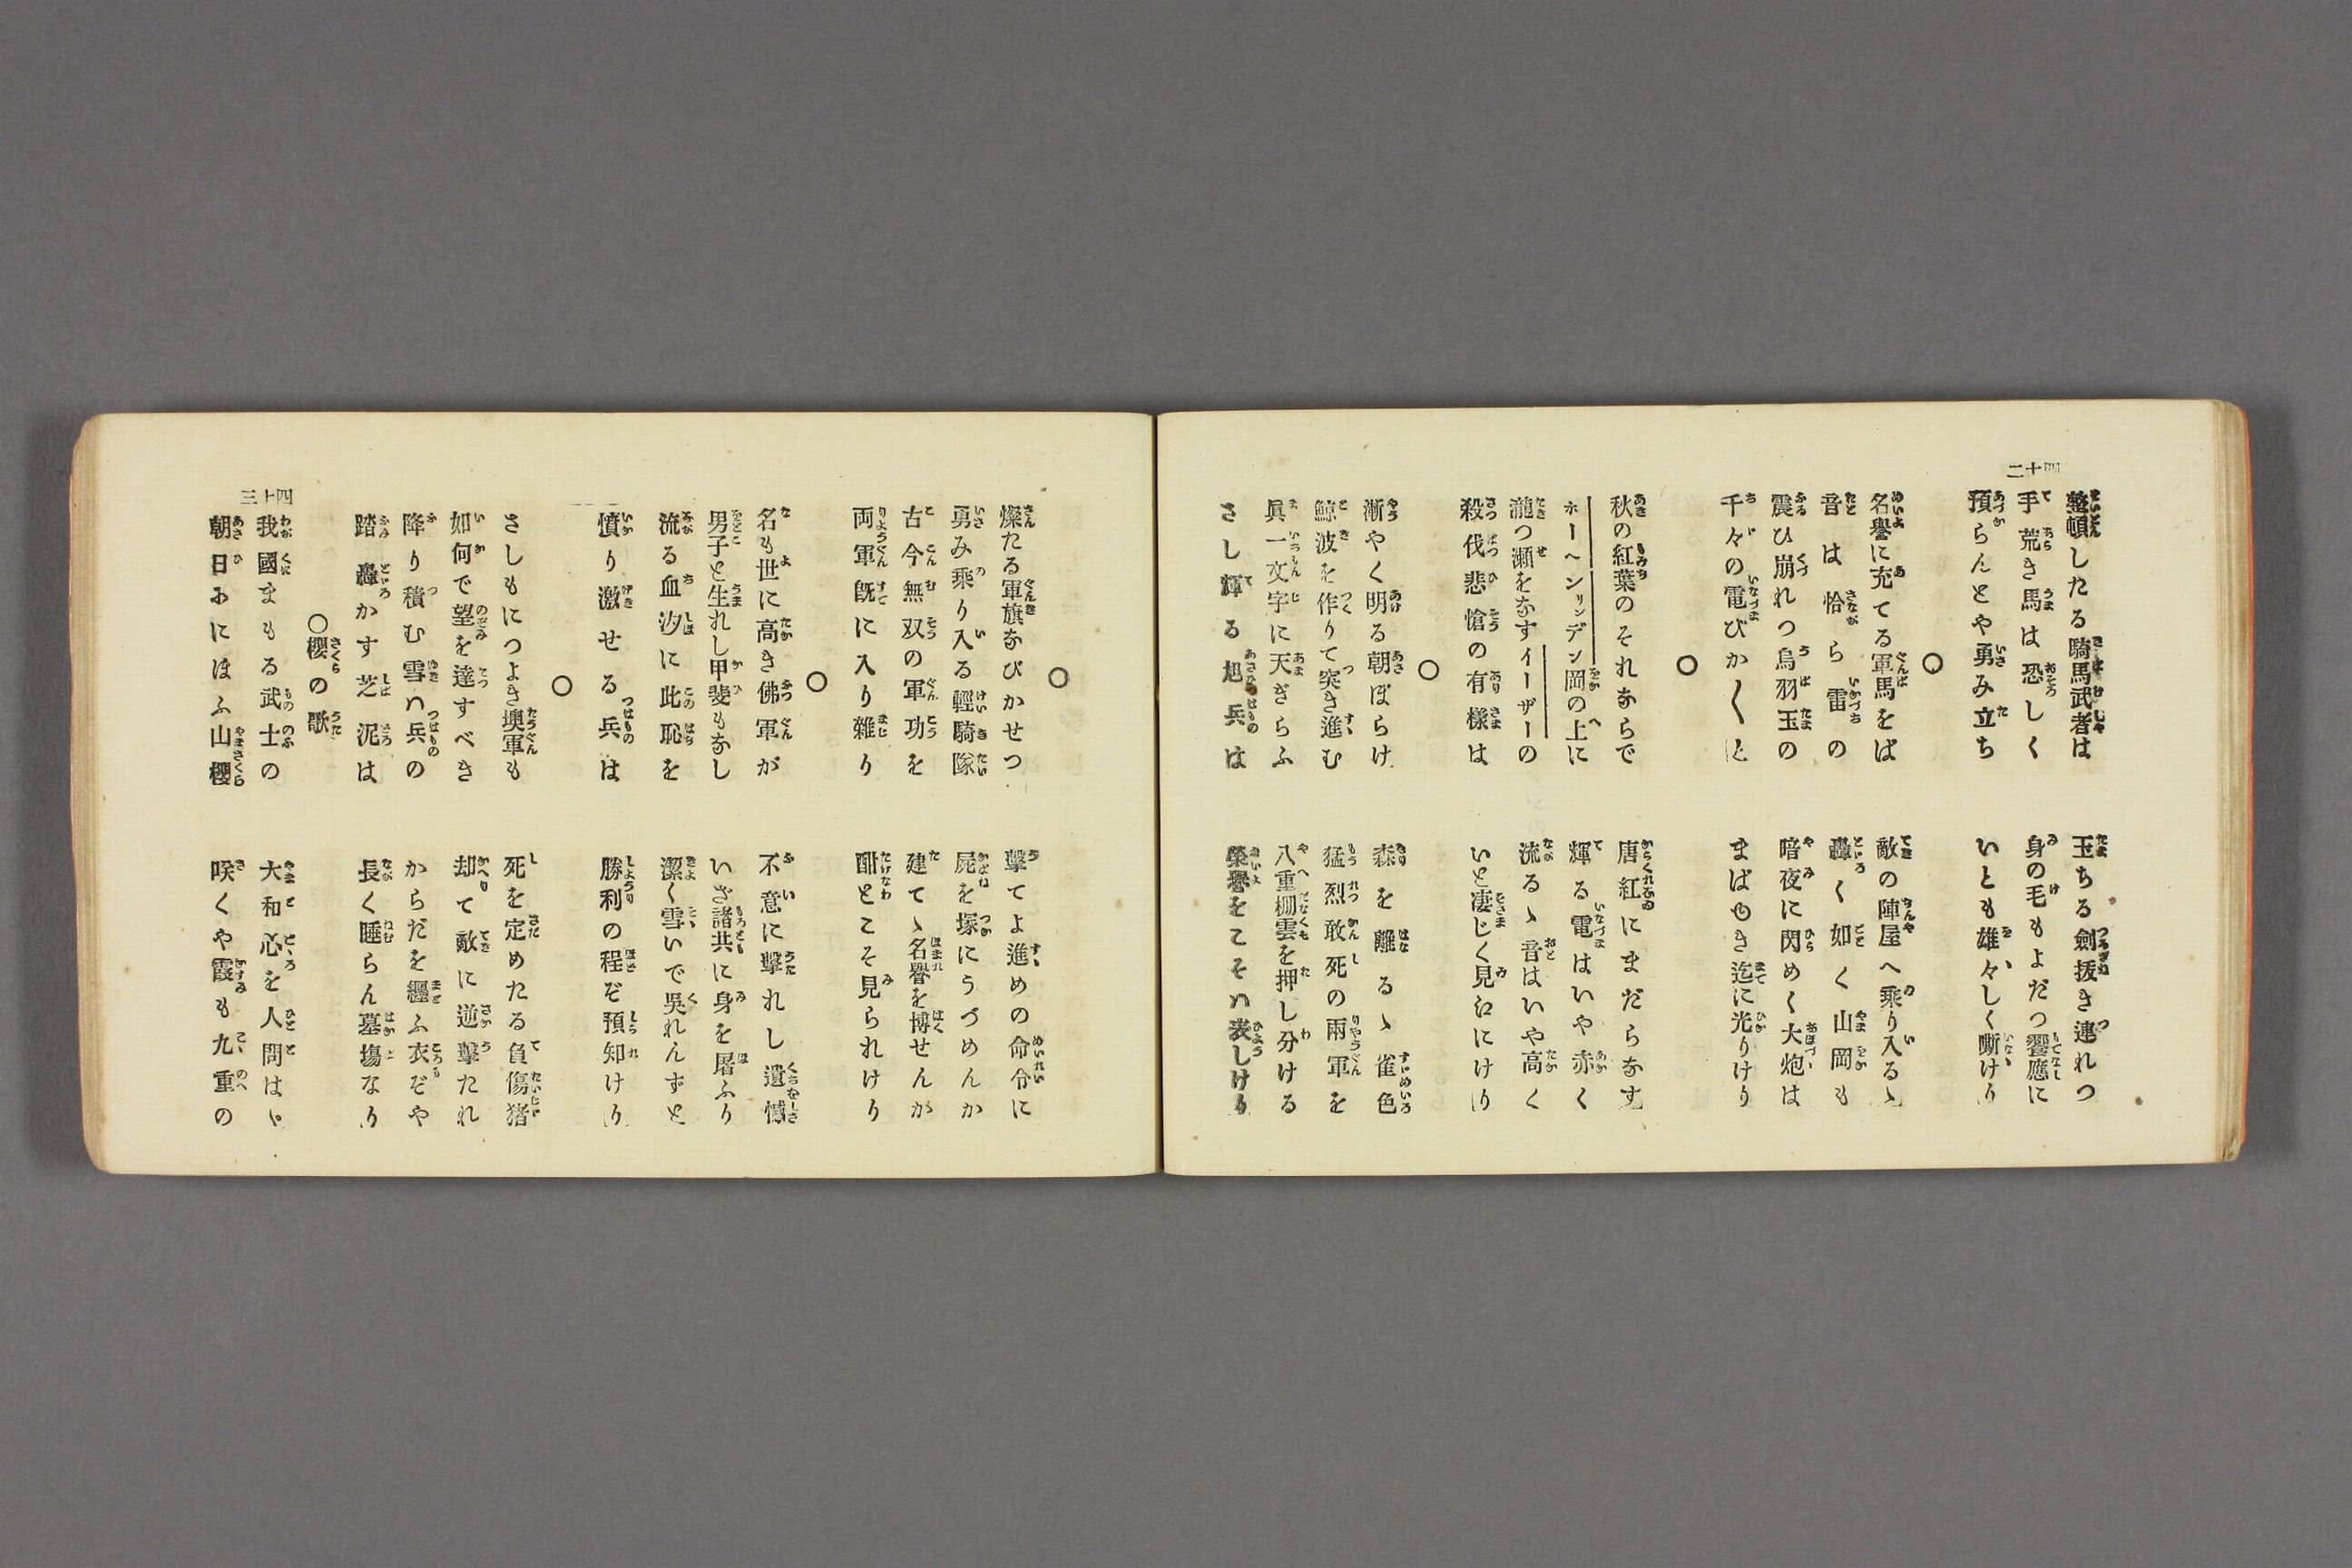 四十二
整頓したる騎馬武者は 玉ちる劍拔き連れつ
手荒き馬は恐しく 身の毛もよだつ饗應に
預らんとや勇み立ち いとも雄々しく嘶けり
名譽に充てる軍馬をば 敵の陣屋へ乘り入るゝ
音は恰ら雷の 轟く如く山岡も
震ひ崩れつ烏羽玉の 暗夜に閃めく大炮は
千々の電びか〱と まばゆき迄に光りけり
○
秋の紅葉のそれならで 唐紅にまだらなす
ホーヘンリンデン岡の上に 輝る電はいや赤く
瀧つ瀬をなすイーザーの 流るゝ音はいや高く
殺伐悲愴の有樣は いと凄じく見江にけり
○
漸やく明る朝ぼらけ 森を離るゝ雀色
鯨波を作りて突き進む 猛烈敢死の兩軍を
眞一文字に天ぎらふ 八重棚雲を押し分ける
さし輝る旭兵は 榮譽をこそハ表しけり
○
燦たる軍旗なびかせつ 擊てよ進めの命令に
勇み乘り入る輕騎隊 屍を塚にうづめんか
古今無双の軍功を 建てゝ名譽を博せんが
両軍既に入り雜り 酣とこそ見られけり
○
名も世に高き佛軍が 不意に擊れし遺憾
男子と生れし甲斐もなし いざ諸共に身を屠ふり
流る血汐に此恥を 潔く雪いで吳れんずと
憤り激せる兵は 勝利の程ぞ預知けり
○
さしもにつよき墺軍も 死を定めたる負傷猪
如何で望を達すべき 却て敵に逆擊たれ
降り積む雪ハ兵の からだを纒ふ衣ぞや
踏轟かす芝泥は 長く睡らん墓塲なり
○櫻の歌
我國まもる武士の 大和心を人問はゞ
朝日にほふ山櫻 咲くや霞も九重の
四十三